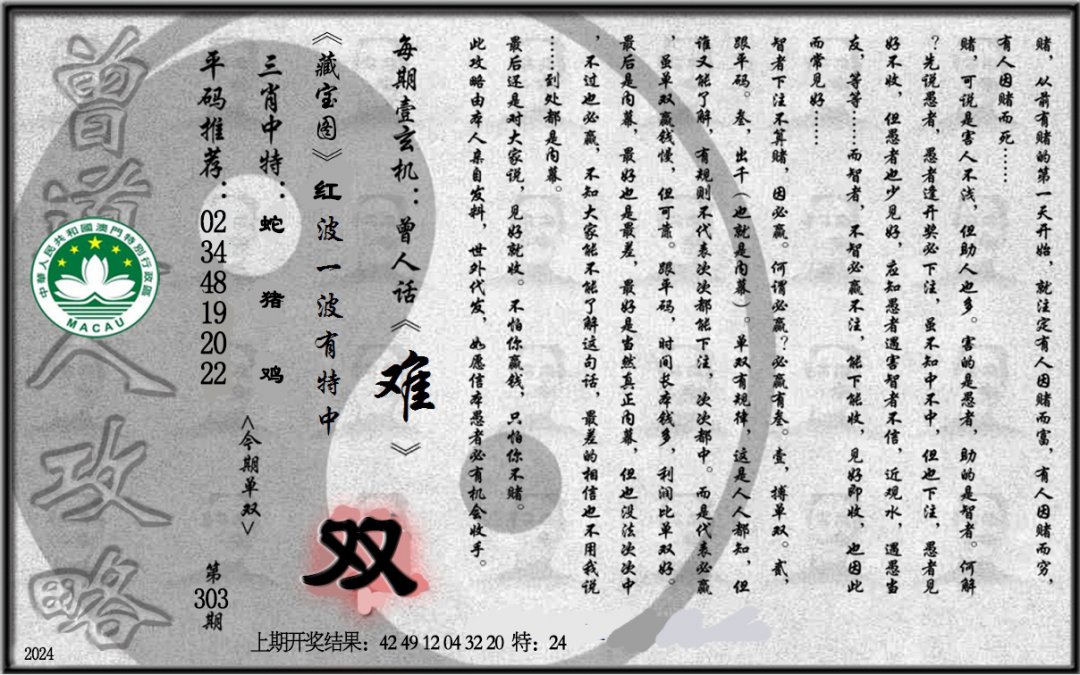 赌，从前有赌的第一天开始，就注定有人因赌而富，有人因赌而穷，
有人因赌而死……
赌，可说是害人不浅，但助人也多。害的是愚者，助的是智者。何解
？先说愚者，愚者逢开奖必下注，虽不知中不中，但也下注，愚者见
好不收，但愚者也少见好，应知愚者遇害智者不信，近观水，遇愚当
友，等等……而智者，不智必赢不注，能下能收，见好即收，也因此
而常见好……
智者下注不算赌，因必赢。何谓必赢？必赢有叁。壹，搏单双。贰，
跟平码。叁，出千（也就是内幕）。单双有规律，这是人人都知，但
谁又能了解，有规则不代表次次都能下注，次次都中。而是代表必赢
，虽单双赢钱慢，但可靠。跟平码，时间长本钱多，利润比单双好。
最后是内幕，最好也是最差，最好是当然真正内幕，但也没法次次中
，不过也必赢，不知大家能不能了解这句话，最差的相信也不用我说
……到处都是内幕。
最后还是对大家说，见好就收。不怕你赢钱，只怕你不赌。
此攻略由本人亲自发料，世外代发，如愿信本愚者必有机会收手。
每期壹玄机：曾人话《难》
《藏宝图》红波一波有特中
双
三肖中特：蛇 猪 鸡
<今期单双>
平码推荐：02 34 48 19 20 22
第303期
曾道人攻略
中華人民共和國澳門特別行政區
MACAU
上期开奖结果：42 49 12 04 32 20 特：24
2024